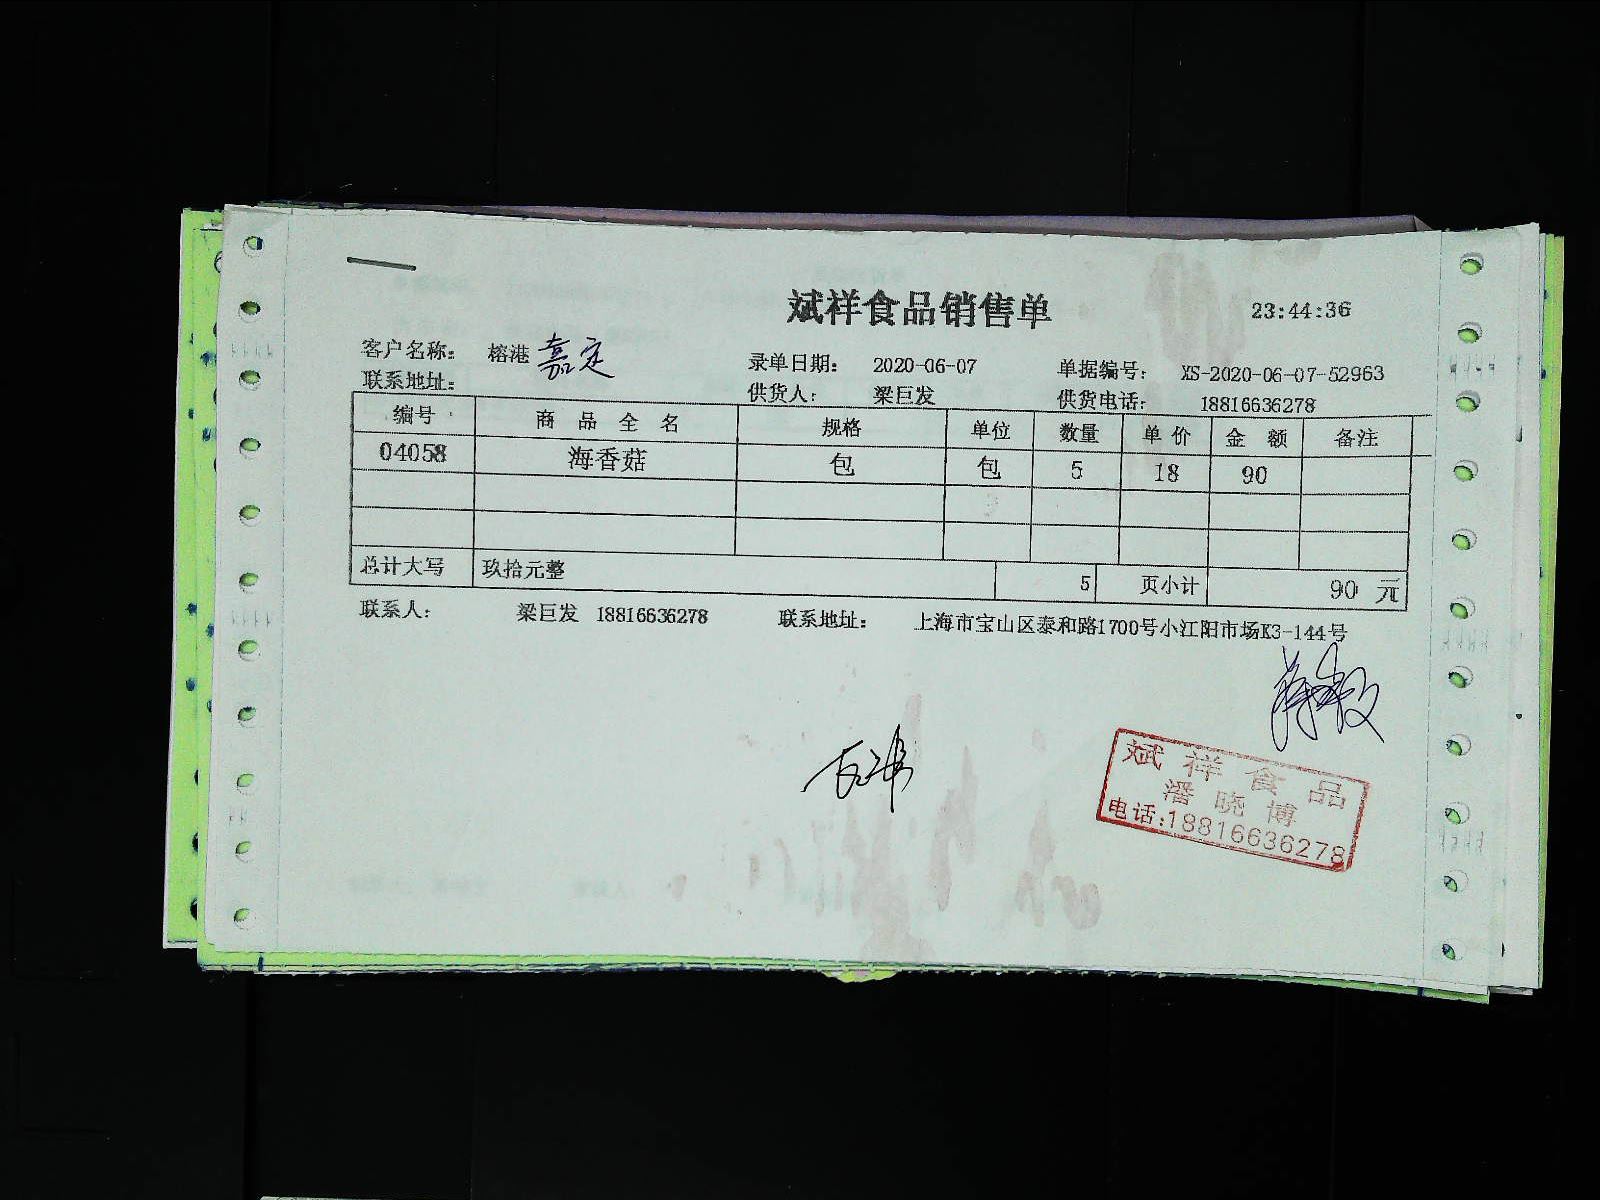 斌祥食品销售单 23:44:36
客户名称： 榕港 嘉定 录单日期： 2020-06-07 单据编号： XS-2020-06-07-52963
联系地址： 供货人： 梁巨发 供货电话： 18816636278
编号 商品全名 规格 单位 数量 单价 金额 备注
04058 海香菇 包 包 5 18 90
总计大写 玖拾元整 5 页小计 90 元
联系人： 梁巨发 18816636278 联系地址： 上海市宝山区泰和路1700号小江阳市场K3-144号
斌祥食品
潘晓博
电话:18816636278